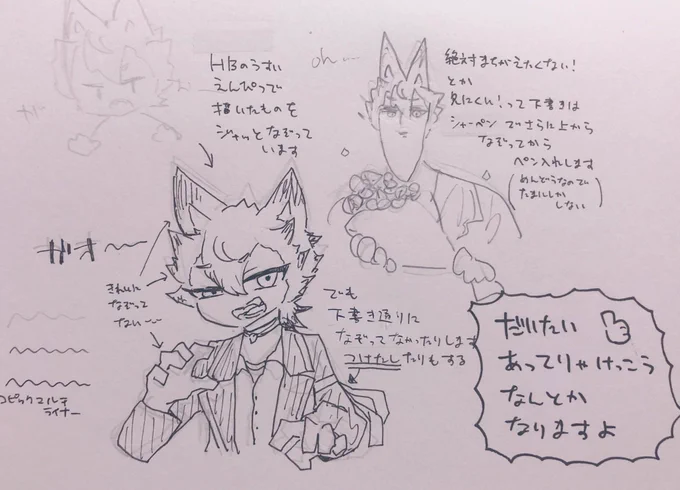 HBのうすい
えんぴつで
描いたものを
ジャッとなぞって
います
oh〜
絶対まちがえたくない!
とか
見にくい!って下書きは
シャーペンでさらに上から
なぞってから
ペン入れします
(めんどうなので
たまにしか
しない)
ガオ〜
きれいに
なぞって
ない〜
でも
下書き通りに
なぞってなかったりします
つけたしたりもする
コピックマルチ
ライナー
だいたい
あってりゃけっこう
なんとか
なりますよ